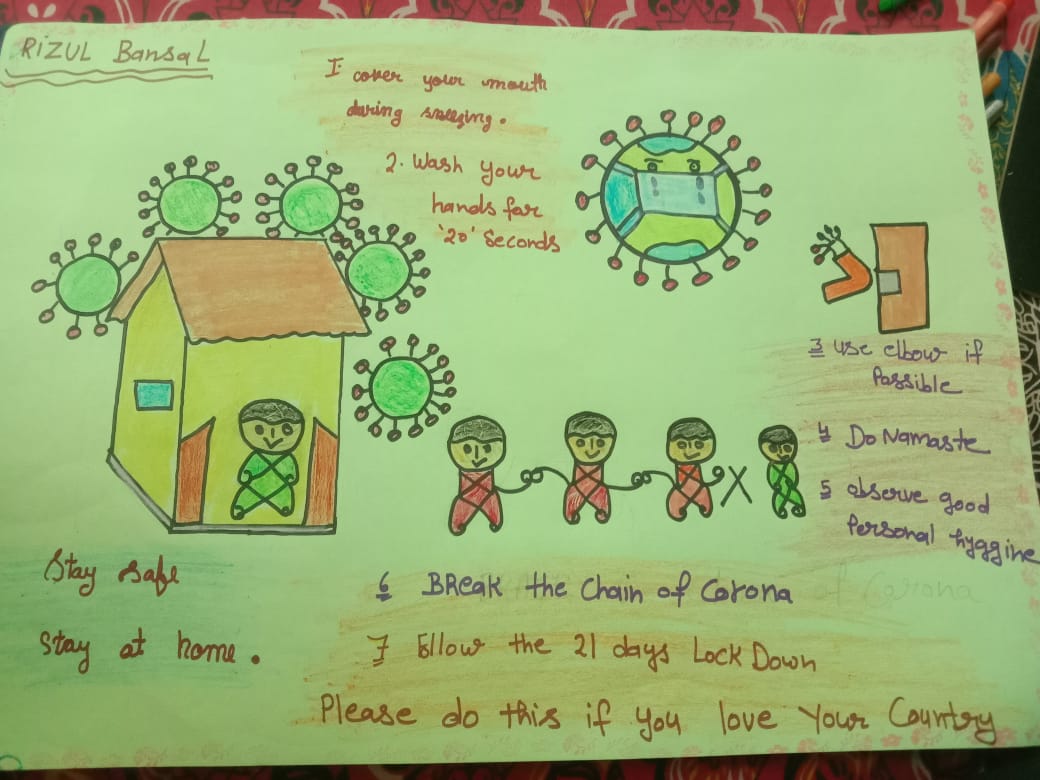 RIZUL Bansal
1. cover your mouth
during sneezing.
2. Wash your
hands for
'20' Seconds
3 use elbow if
Possible
4 Do Namaste
5 observe good
Personal hyggine
6 BReak the Chain of Corona
of Corona
7 Follow the 21 days Lock Down
Please do this if you love Your Country
Stay safe
Stay at home.